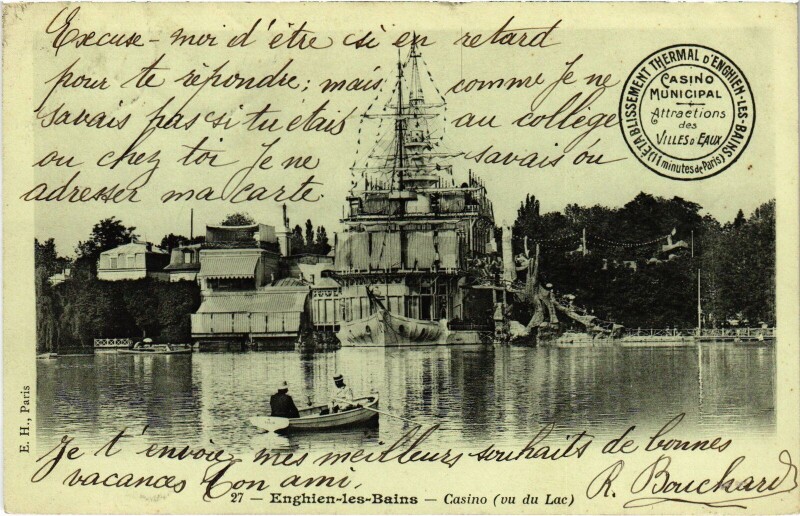 Excuse-moi d'être si en retard
pour te répondre; mais comme Je ne
savais pas si tu étais au collége
ou chez toi Je ne savais où
adresser ma carte.
ÉTABLISSEMENT THERMAL D'ENGHIEN-LES-BAINS
CASINO
MUNICIPAL
Attractions
des
VILLES D'EAUX
(11 minutes de Paris)
E. H., Paris
Je t'envoie mes meilleurs souhaits de bonnes
vacances Ton ami.
R. Bouchard
27 — Enghien-les-Bains — Casino (vu du Lac)